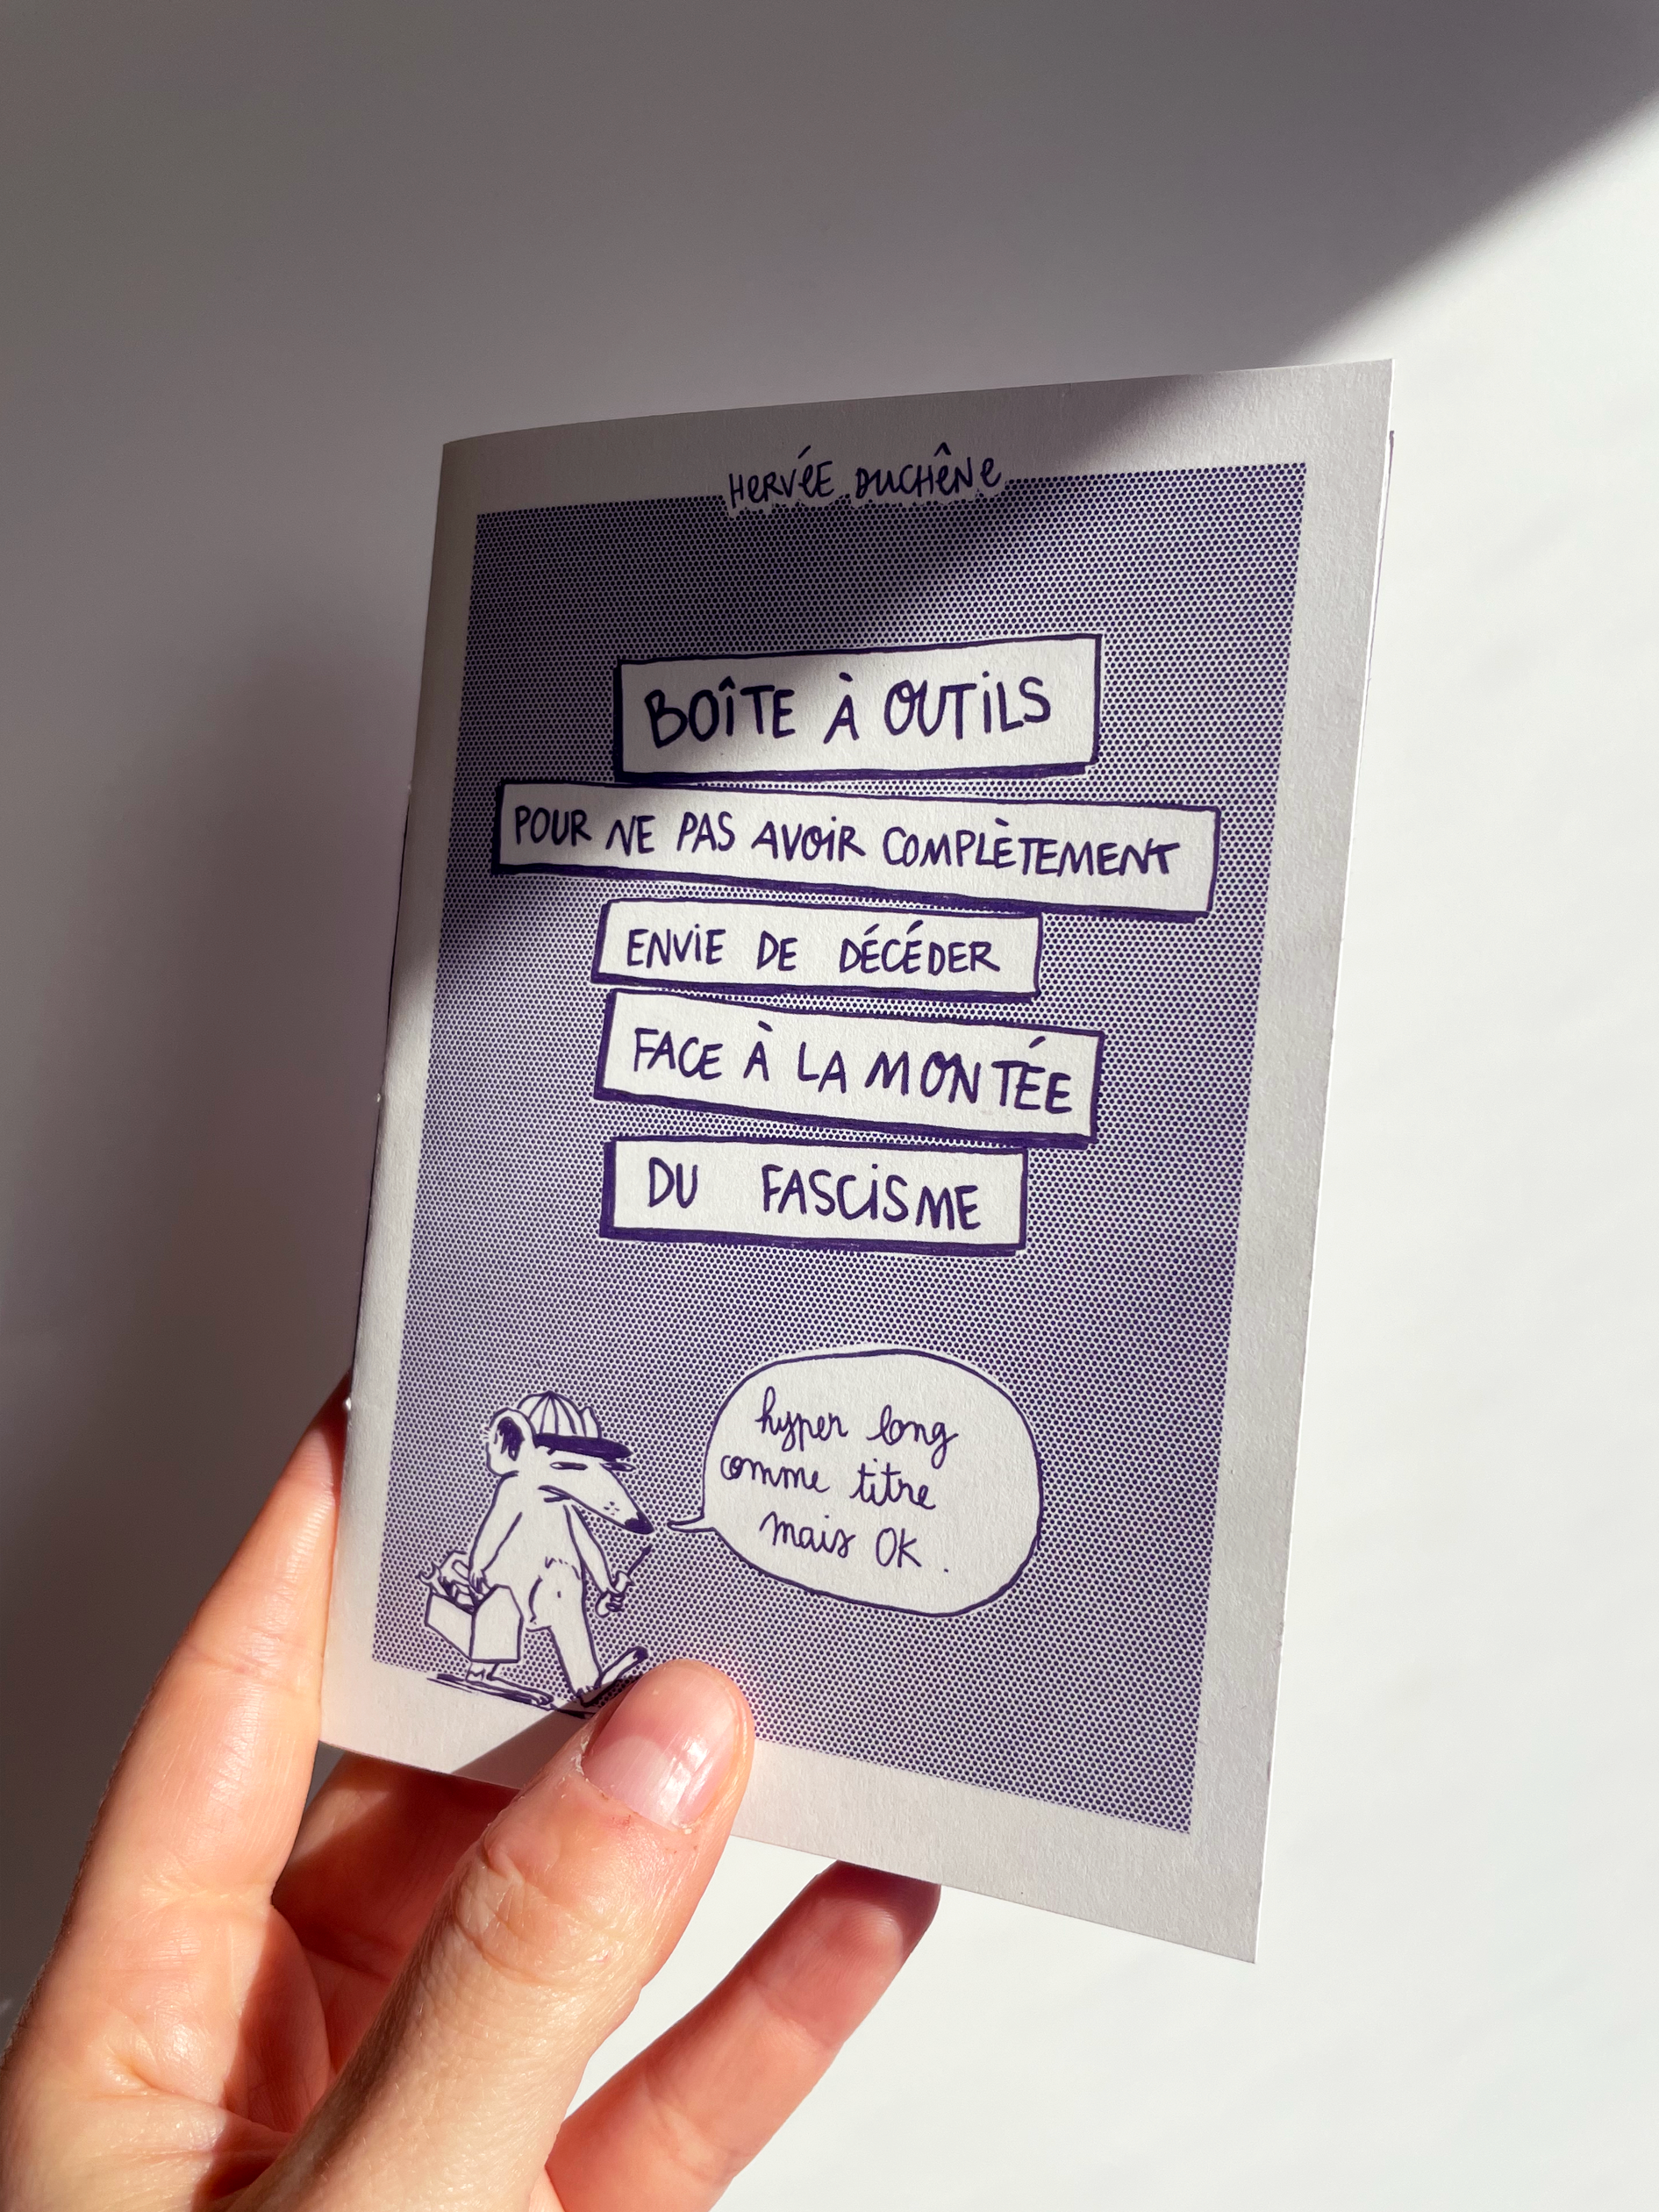 HERVÉE DUCHÊNE
BOÎTE À OUTILS
POUR NE PAS AVOIR COMPLÈTEMENT
ENVIE DE DÉCÉDER
FACE À LA MONTÉE
DU FASCISME
hyper long
comme titre
mais OK.